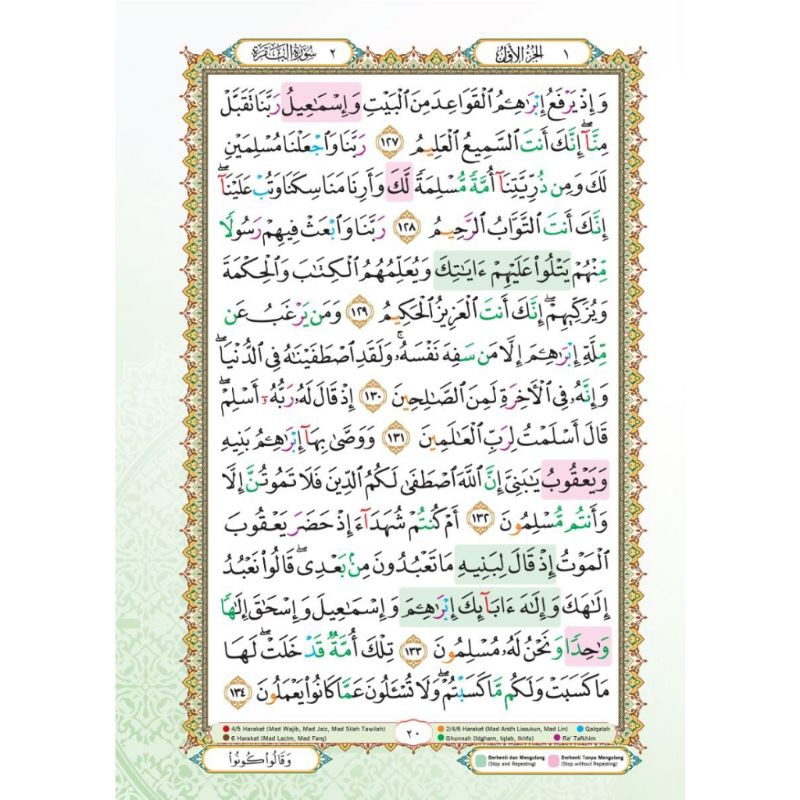 ٢ سُورَةُ البَقَرَة
الجُزءُ الأوَّلُ ١
وَإِذْ يَرْفَعُ إِبْرَٰهِـۧمُ ٱلْقَوَاعِدَ مِنَ ٱلْبَيْتِ وَإِسْمَٰعِيلُ رَبَّنَا تَقَبَّلْ
مِنَّآ ۖ إِنَّكَ أَنتَ ٱلسَّمِيعُ ٱلْعَلِيمُ ١٢٧ رَبَّنَا وَٱجْعَلْنَا مُسْلِمَيْنِ
لَكَ وَمِن ذُرِّيَّتِنَآ أُمَّةً مُّسْلِمَةً لَّكَ وَأَرِنَا مَنَاسِكَنَا وَتُبْ عَلَيْنَآ ۖ
إِنَّكَ أَنتَ ٱلتَّوَّابُ ٱلرَّحِيمُ ١٢٨ رَبَّنَا وَٱبْعَثْ فِيهِمْ رَسُولًا
مِّنْهُمْ يَتْلُوا۟ عَلَيْهِمْ ءَايَٰتِكَ وَيُعَلِّمُهُمُ ٱلْكِتَٰبَ وَٱلْحِكْمَةَ
وَيُزَكِّيهِمْ ۚ إِنَّكَ أَنتَ ٱلْعَزِيزُ ٱلْحَكِيمُ ١٢٩ وَمَن يَرْغَبُ عَن
مِّلَّةِ إِبْرَٰهِـۧمَ إِلَّا مَن سَفِهَ نَفْسَهُۥ ۚ وَلَقَدِ ٱصْطَفَيْنَٰهُ فِى ٱلدُّنْيَا ۖ
وَإِنَّهُۥ فِى ٱلْءَاخِرَةِ لَمِنَ ٱلصَّٰلِحِينَ ١٣٠ إِذْ قَالَ لَهُۥ رَبُّهُۥٓ أَسْلِمْ ۖ
قَالَ أَسْلَمْتُ لِرَبِّ ٱلْعَٰلَمِينَ ١٣١ وَوَصَّىٰ بِهَآ إِبْرَٰهِـۧمُ بَنِيهِ
وَيَعْقُوبُ يَٰبَنِىَّ إِنَّ ٱللَّهَ ٱصْطَفَىٰ لَكُمُ ٱلدِّينَ فَلَا تَمُوتُنَّ إِلَّا
وَأَنتُم مُّسْلِمُونَ ١٣٢ أَمْ كُنتُمْ شُهَدَآءَ إِذْ حَضَرَ يَعْقُوبَ
ٱلْمَوْتُ إِذْ قَالَ لِبَنِيهِ مَا تَعْبُدُونَ مِنۢ بَعْدِى ۖ قَالُوا۟ نَعْبُدُ
إِلَٰهَكَ وَإِلَٰهَ ءَابَآئِكَ إِبْرَٰهِـۧمَ وَإِسْمَٰعِيلَ وَإِسْحَٰقَ إِلَٰهًا
وَٰحِدًا وَنَحْنُ لَهُۥ مُسْلِمُونَ ١٣٣ تِلْكَ أُمَّةٌ قَدْ خَلَتْ ۖ لَهَا
مَا كَسَبَتْ وَلَكُم مَّا كَسَبْتُمْ ۖ وَلَا تُسْـَٔلُونَ عَمَّا كَانُوا۟ يَعْمَلُونَ ١٣٤
4/5 Harakat (Mad Wajib, Mad Jaiz, Mad Silah Tawilah)
2/4/6 Harakat (Mad Aridh Lissukun, Mad Lin)
Qalqalah
6 Harakat (Mad Lazim, Mad Farq)
٢٠
Ghunnah (Idgham, Iqlab, Ikhfa)
Ra' Tafkhim
وَقَالُوا۟ كُونُوا۟
Berhenti dan Mengulang
(Stop and Repeating)
Berhenti Tanpa Mengulang
(Stop without Repeating)